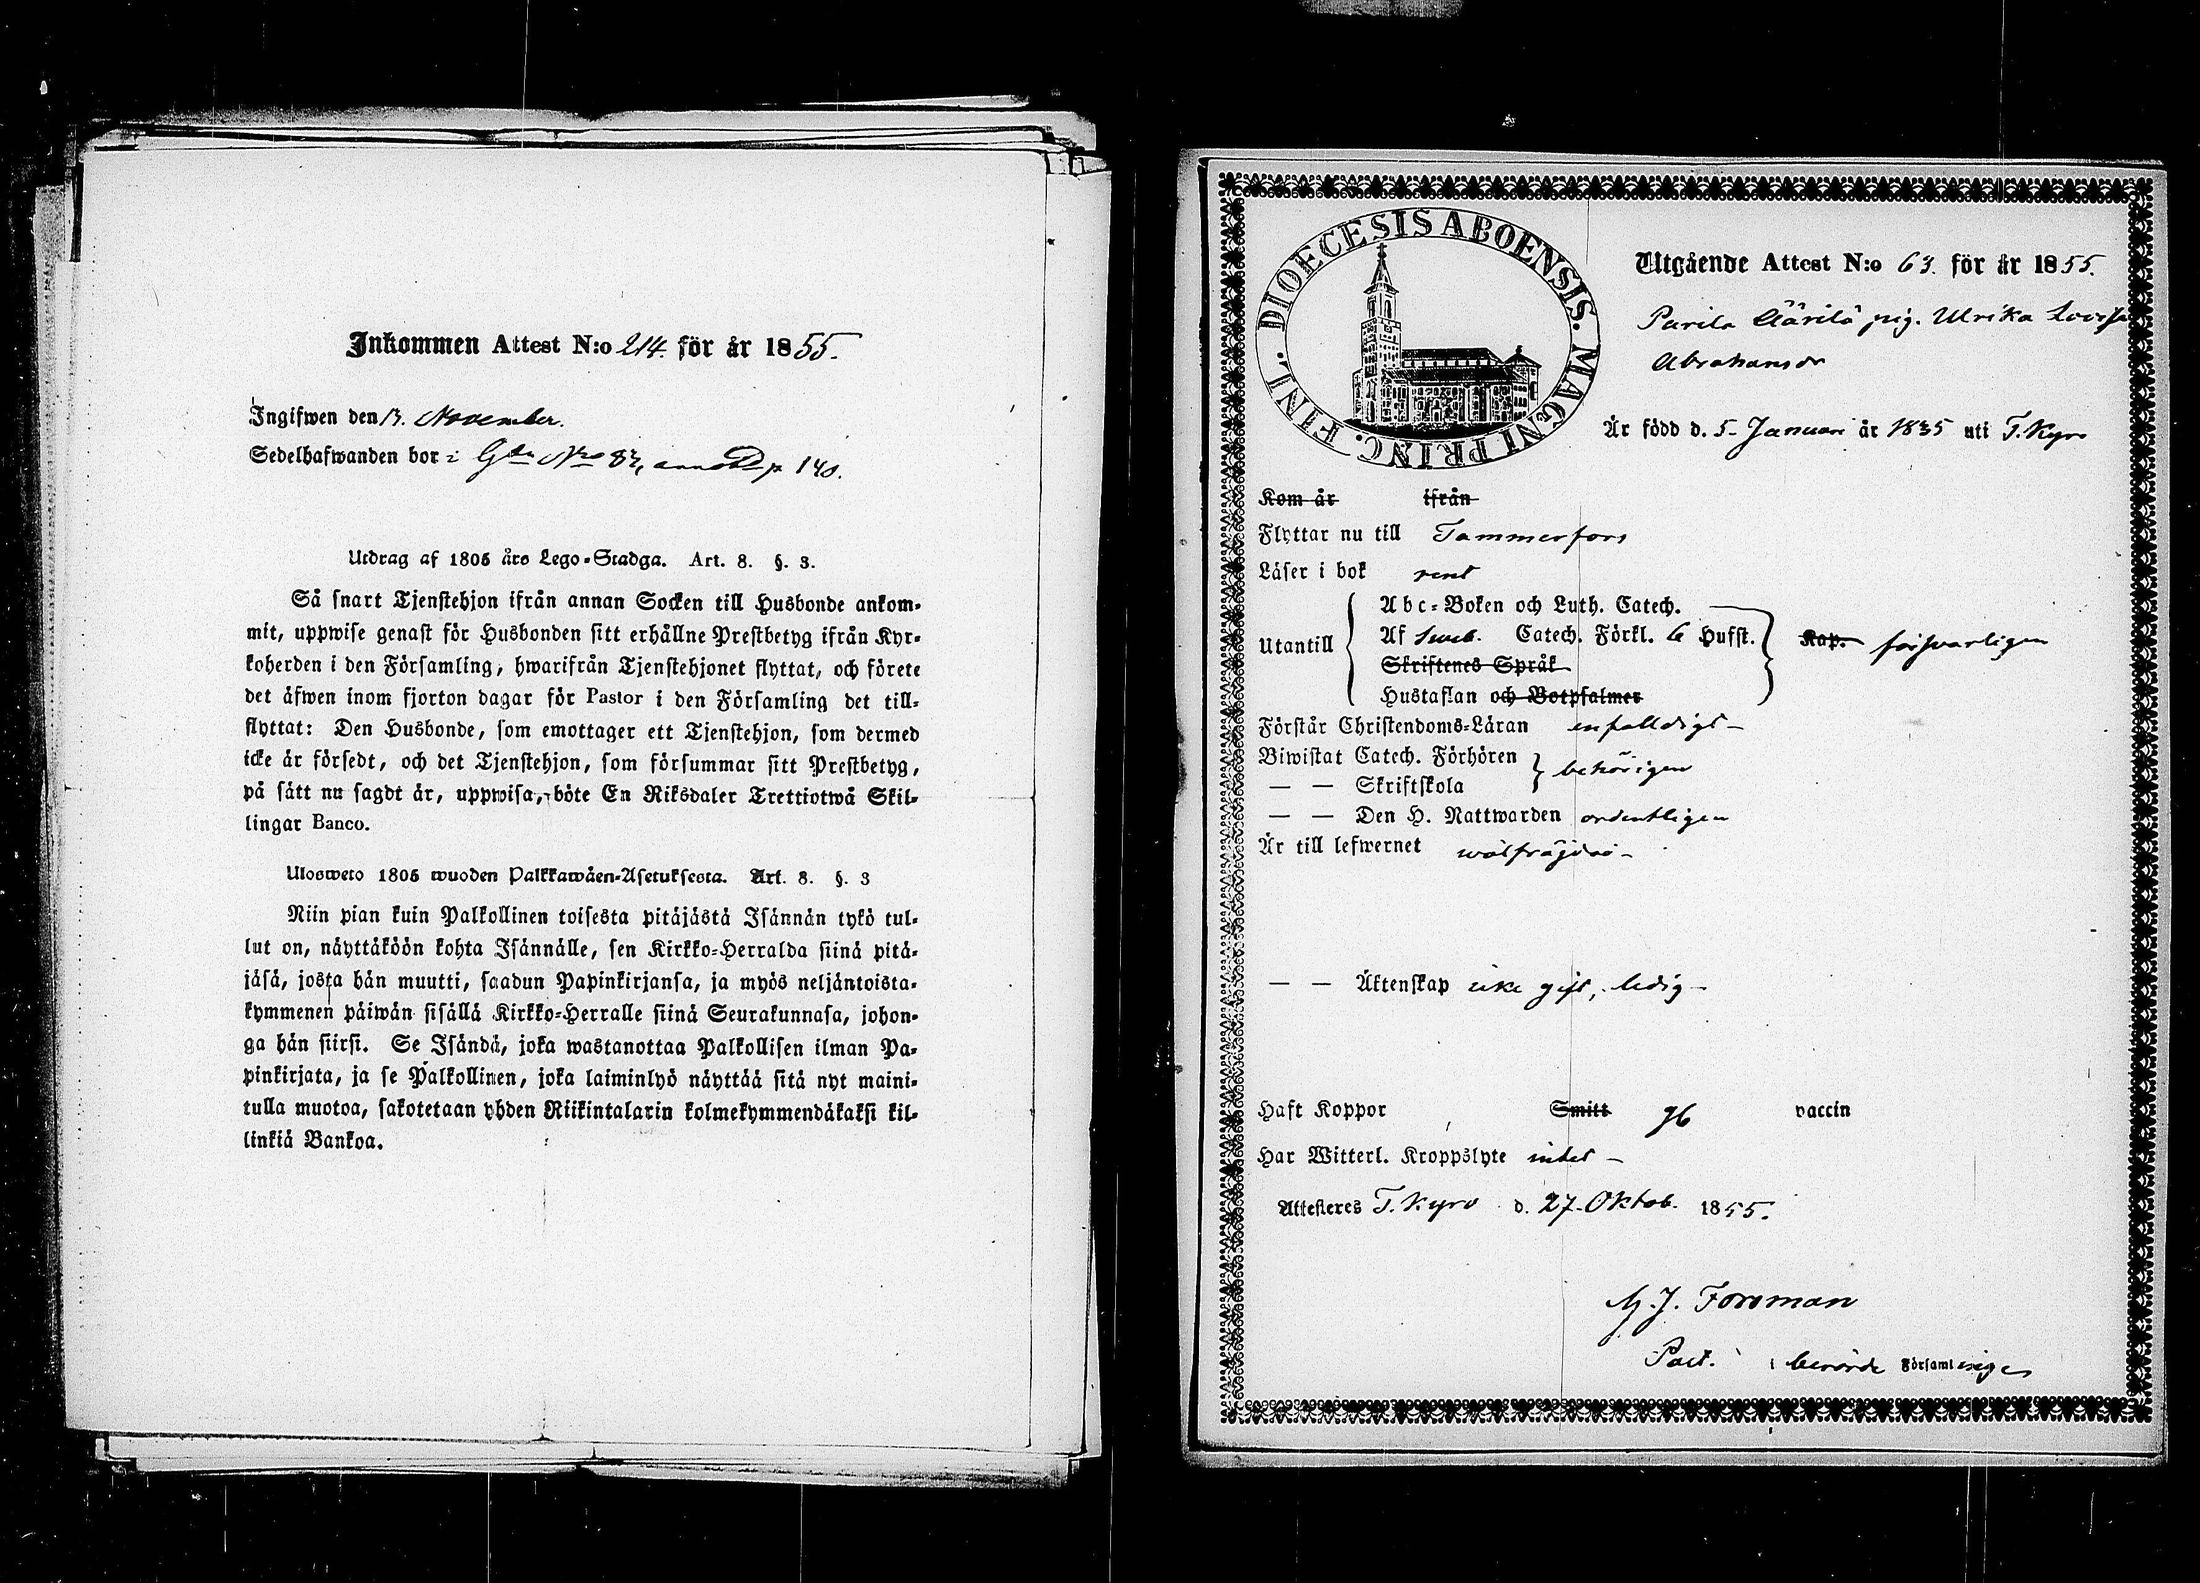 Inkommen Attest N:o 214. för år 1855.
Ingifwen den 13. November.
Sedelhafwanden bor i Gdn Nro 83, p 140.
Utdrag af 1805 års Lego-Stadga. Art. 8. §. 3.
Så snart Tjenstehjon ifrån annan Socken till Husbonde ankom-
mit, uppwise genast för Husbonden sitt erhållne Prestbetyg ifrån Kyr-
koherden i den Församling, hwarifrån Tjenstehjonet flyttat, och förete
det äfwen inom fjorton dagar för Pastor i den Församling det till-
flyttat: Den Husbonde, som emottager ett Tjenstehjon, som dermed
icke är försedt, och det Tjenstehjon, som försummar sitt Prestbetyg,
på sätt nu sagdt är, uppwisa, böte En Riksdaler Trettiotwå Skil-
lingar Banco.
Ulosweto 1805 wuoden Palkkawäen-Asetuksesta. Art. 8. §. 3
Niin pian kuin Palkollinen toisesta pitäjästä Isännän tykö tul-
lut on, näyttäköön kohta Isännälle, sen Kirkko-Herralda siinä pitä-
jäsä, josta hän muutti, saadun Papinkirjansa, ja myös neljäntoista-
kymmenen päiwän sisällä Kirkko-Herralle siinä Seurakunnasa, johon-
ga hän siirsi. Se Isändä, joka wastanottaa Palkollisen ilman Pa-
pinkirjata, ja se Palkollinen, joka laiminlyö näyttää sitä nyt maini-
tulla muotoa, sakotetaan yhden Riikintalarin kolmekymmendäkaksi kil-
linkiä Bankoa.
DIOECESIS ABOENSIS. MAGNI PRINC. FINL.
Utgående Attest N:o 63. för år 1855.
Parila Äärilä pig. Ulrika Lovisa
Abrahamsdr
Är född d. 5. Januari år 1835 uti T. Kyro
Kom år ifrån
Flyttar nu till Tammerfors
Läser i bok rent
Utantill
Abc-Boken och Luth. Catech.
Af Sweb. Catech. Förkl. 6 Hufst. Kap. försvarligen
Skriftenes Språk
Hustaflan och Botpsalmer
Förstår Christendoms-Läran enfalldigt
Biwistat Catech. Förhören behörigen
— — Skriftskola
— — Den H. Nattwarden ordentligen
Är till lefwernet wälfräjdad
— — Äktenskap icke gift, ledig
Haft Koppor Smitt gb vaccin
Har Witterl. Kroppslyte intet
Attesteres T. Kyro d. 27. Oktob. 1855.
M. J. Forsman
Past. i berörde Församlingen